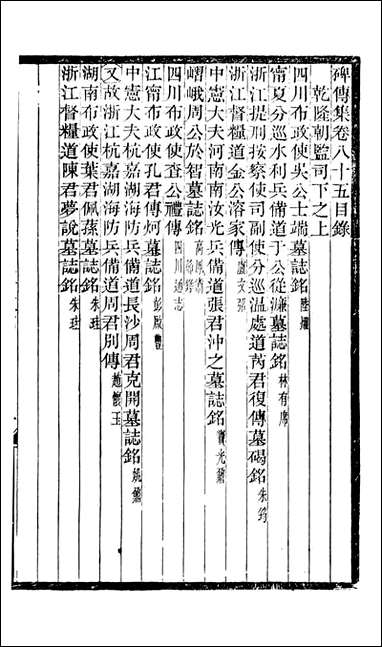 碑傳集卷八十五目錄
乾隆朝監司下之上
四川布政使吳公士端墓誌銘 陸燿
甯夏分巡水利兵備道于公從濂墓誌銘 林有席
浙江提刑按察使司副使分巡温處道芮君復傳墓碣銘 朱筠
浙江督糧道金公溶家傳 盧文弨
中憲大夫河南南汝光兵備道張君沖之墓誌銘 竇光鼐
嶍峨周公於智墓誌銘
四川布政使查公禮傳 四川通志
江甯布政使孔君傳炣墓誌銘 彭啟豐
中憲大夫杭嘉湖海防兵備道長沙周君克開墓誌銘 姚鼐
又故浙江杭嘉湖海防兵備道周君別傳 趙懷玉
湖南布政使葉君佩蓀墓誌銘 朱珪
浙江督糧道陳君夢說墓誌銘 朱珪